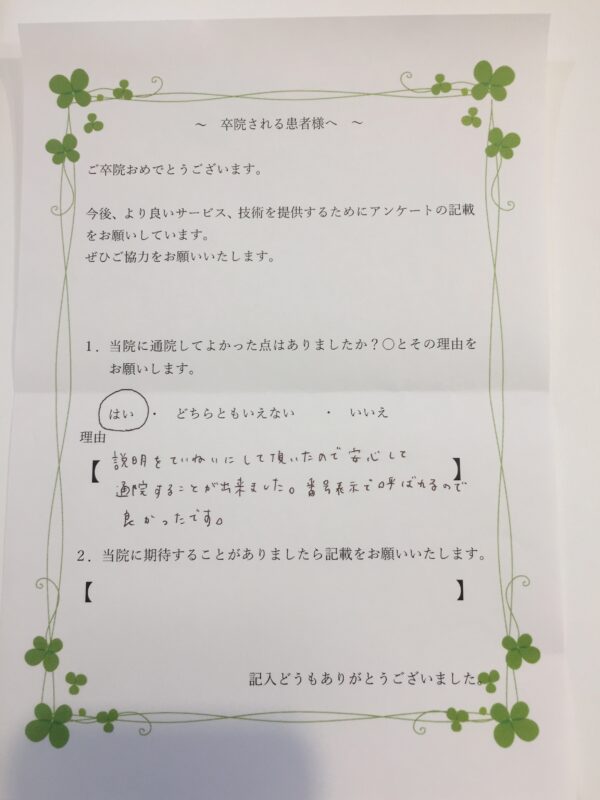 ～　卒院される患者様へ　～
ご卒院おめでとうございます。
今後、より良いサービス、技術を提供するためにアンケートの記載
をお願いしています。
ぜひご協力をお願いいたします。
１．当院に通院してよかった点はありましたか？○とその理由を
お願いします。
はい　・　どちらともいえない　・　いいえ
理由
【説明をていねいにして頂いたので安心して】
通院することが出来ました。番号表示で呼ばれるので
良かったです。
２．当院に期待することがありましたら記載をお願いいたします。
【　】
記入どうもありがとうございました。